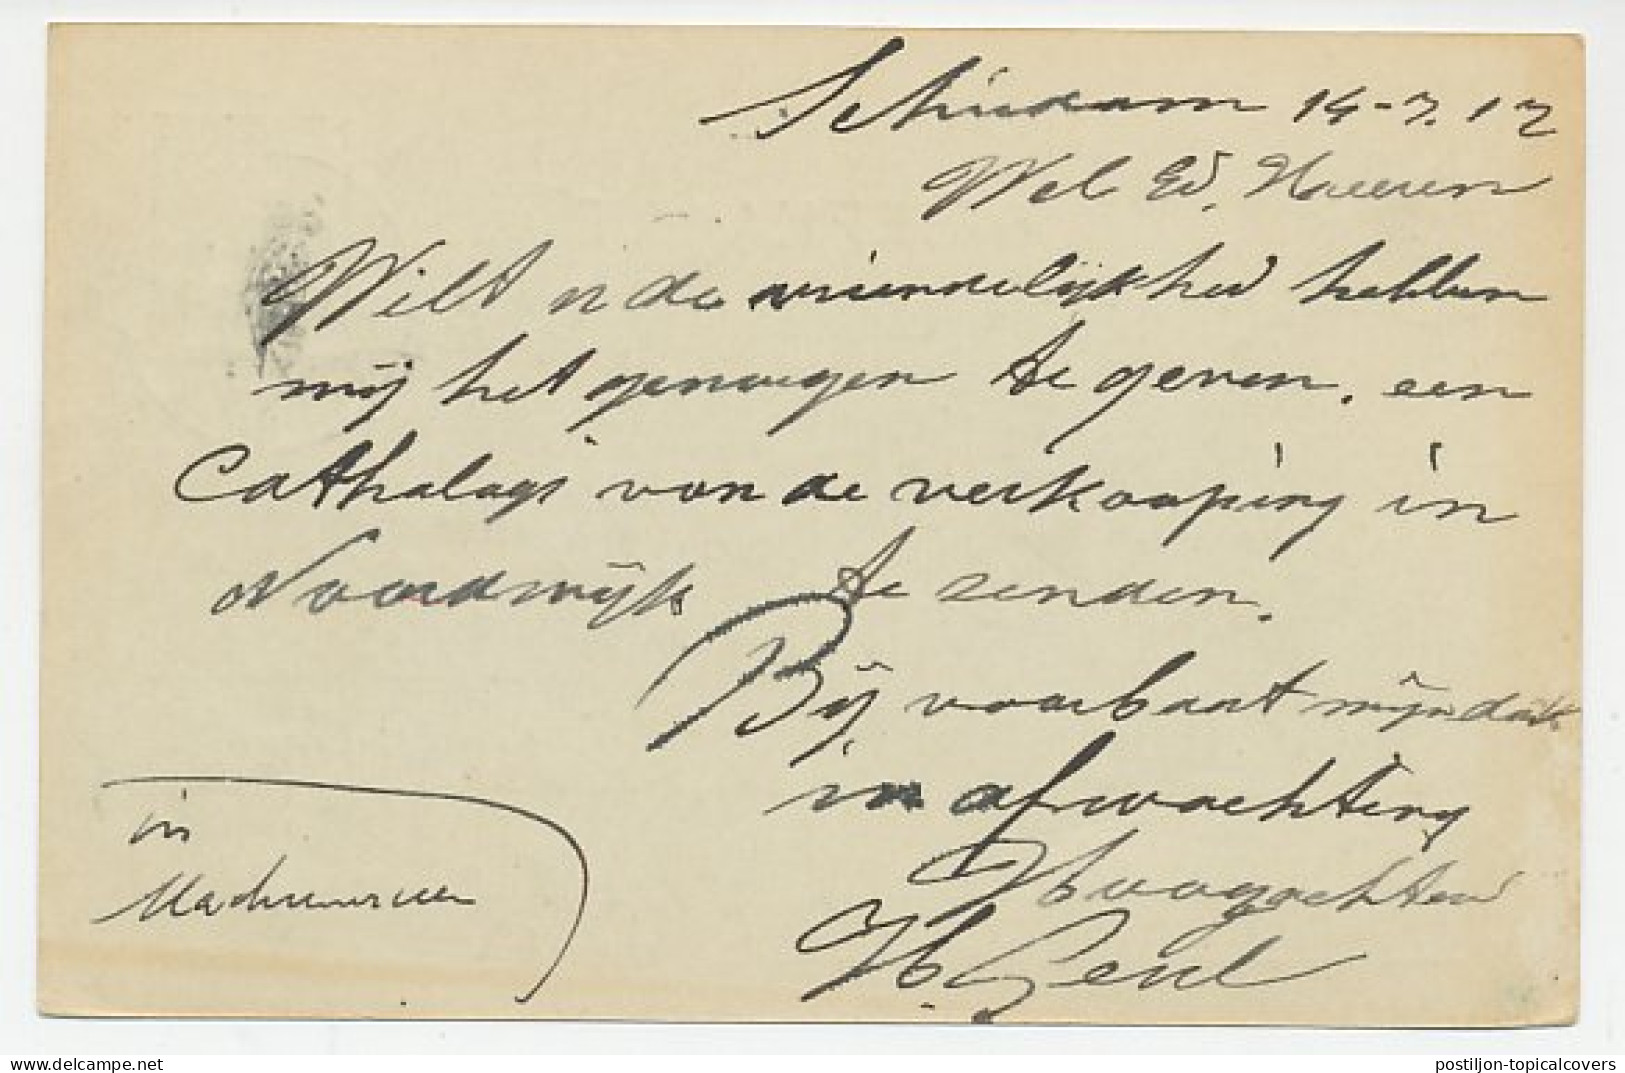 Schiedam 14-7.12
Wel Ed. Heeren
Wilt u de vriendelijkheid hebben
mij het genoegen te geven, een
Cathalogs van de verkooping in
Noordwijk te zenden.
Bij voorbaat mijn dank
in afwachting
Hoogachtend
H.
in
delcampe.net
postiljon-topicalcovers